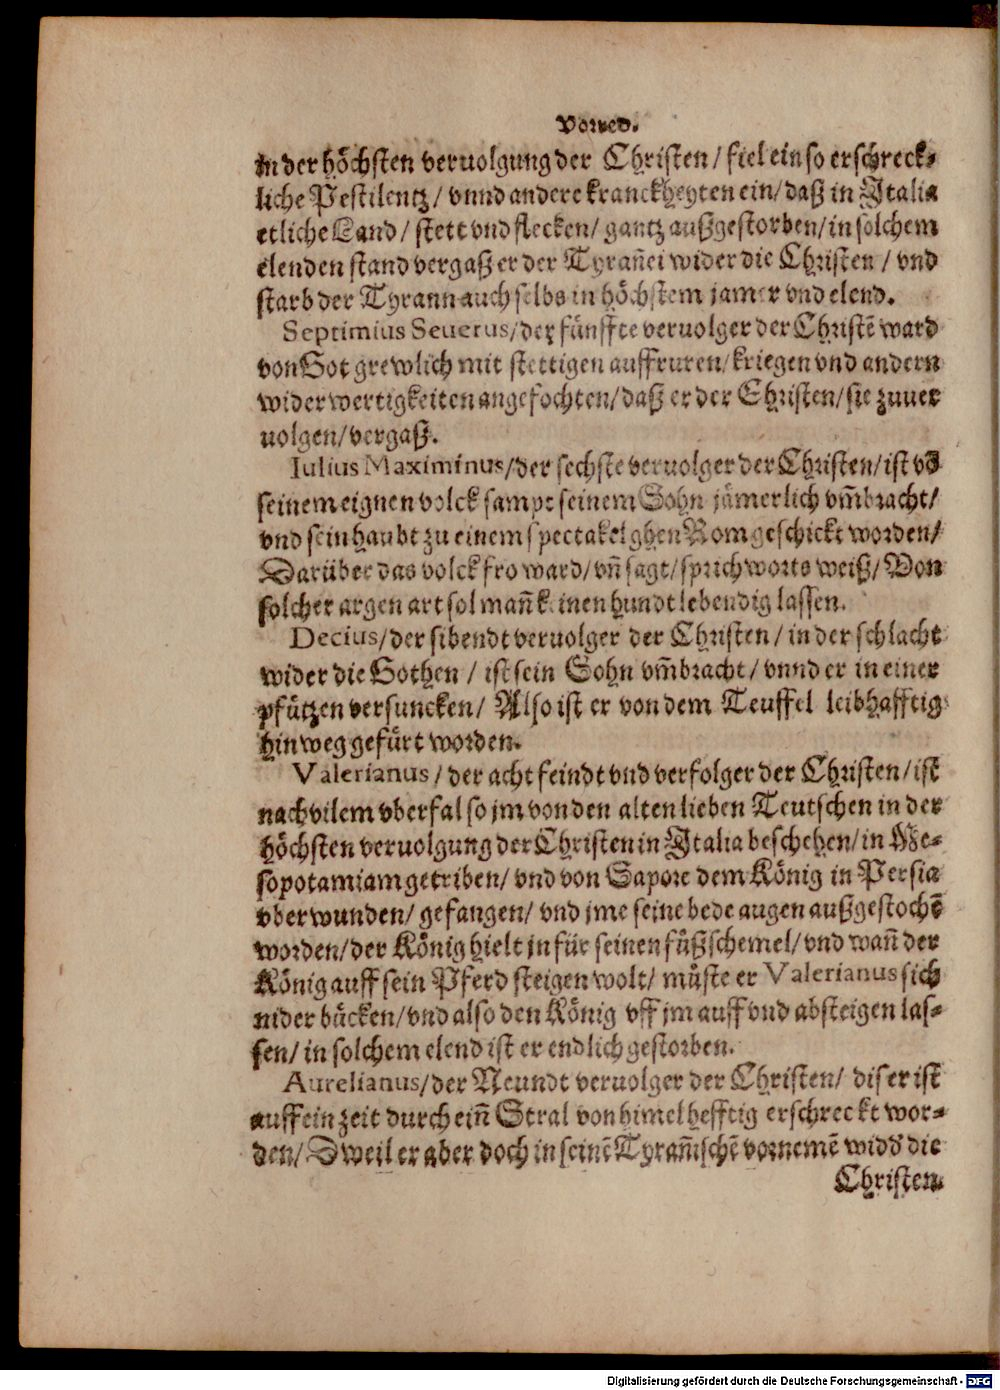 Vorred.
in der höchsten veruolgung der Christen/ fiel ein so erschreck-
liche Pestilentz/ vnnd andere kranckheyten ein/ daß in Italia
etliche Land/ stett vnd flecken/ gantz außgestorben/ in solchem
elenden stand vergaß er der Tyrañei wider die Christen / vnd
starb der Tyrann auch selbs in höchstem jamer vnd elend.
Septimius Seuerus/ der fünffte veruolger der Christẽ ward
von Got grewlich mit stettigen auffruren/ kriegen vnd andern
widerwertigkeiten angefochten/ daß er der Christen/ sie zuuer
uolgen/ vergaß.
Iulius Maximinus/ der sechste veruolger der Christen/ ist võ
seinem eignen volck sampt seinem Sohn jämerlich vm̃bracht/
vnd sein haubt zu einem spectakel ghen Rom geschickt worden/
Darüber das volck fro ward/ vñ sagt/ sprichworts weiß/ Von
solcher argen art sol mañ keinen hundt lebendig lassen.
Decius/ der sibendt veruolger der Christen/ in der schlacht
wider die Gothen / ist sein Sohn vm̃bracht/ vnnd er in einer
pfützen versuncken/ Also ist er von dem Teuffel leibhafftig
hinweg gefürt worden.
Valerianus/ der acht feindt vnd verfolger der Christen/ ist
nach vilem vberfal so jm von den alten lieben Teutschen in der
höchsten veruolgung der Christen in Italia beschehen/ in Me-
sopotamiam getriben/ vnd von Sapore dem König in Persia
vberwunden/ gefangen/ vnd jme seine bede augen außgestochẽ
worden/ der König hielt jn für seinen fůßschemel/ vnd wañ der
König auff sein Pferd steigen wolt/ můste er Valerianus sich
nider bücken/ vnd also den König vff jm auff vnd absteigen las-
sen/ in solchem elend ist er endlich gestorben.
Aurelianus/ der Neundt veruolger der Christen/ diser ist
auff ein zeit durch eiñ Stral von himel hefftig erschreckt wor-
den/ Dweil er aber doch in seinẽ Tyrañischẽ vornemẽ widð die
Christen.
Digitalisierung gefördert durch die Deutsche Forschungsgemeinschaft - DFG